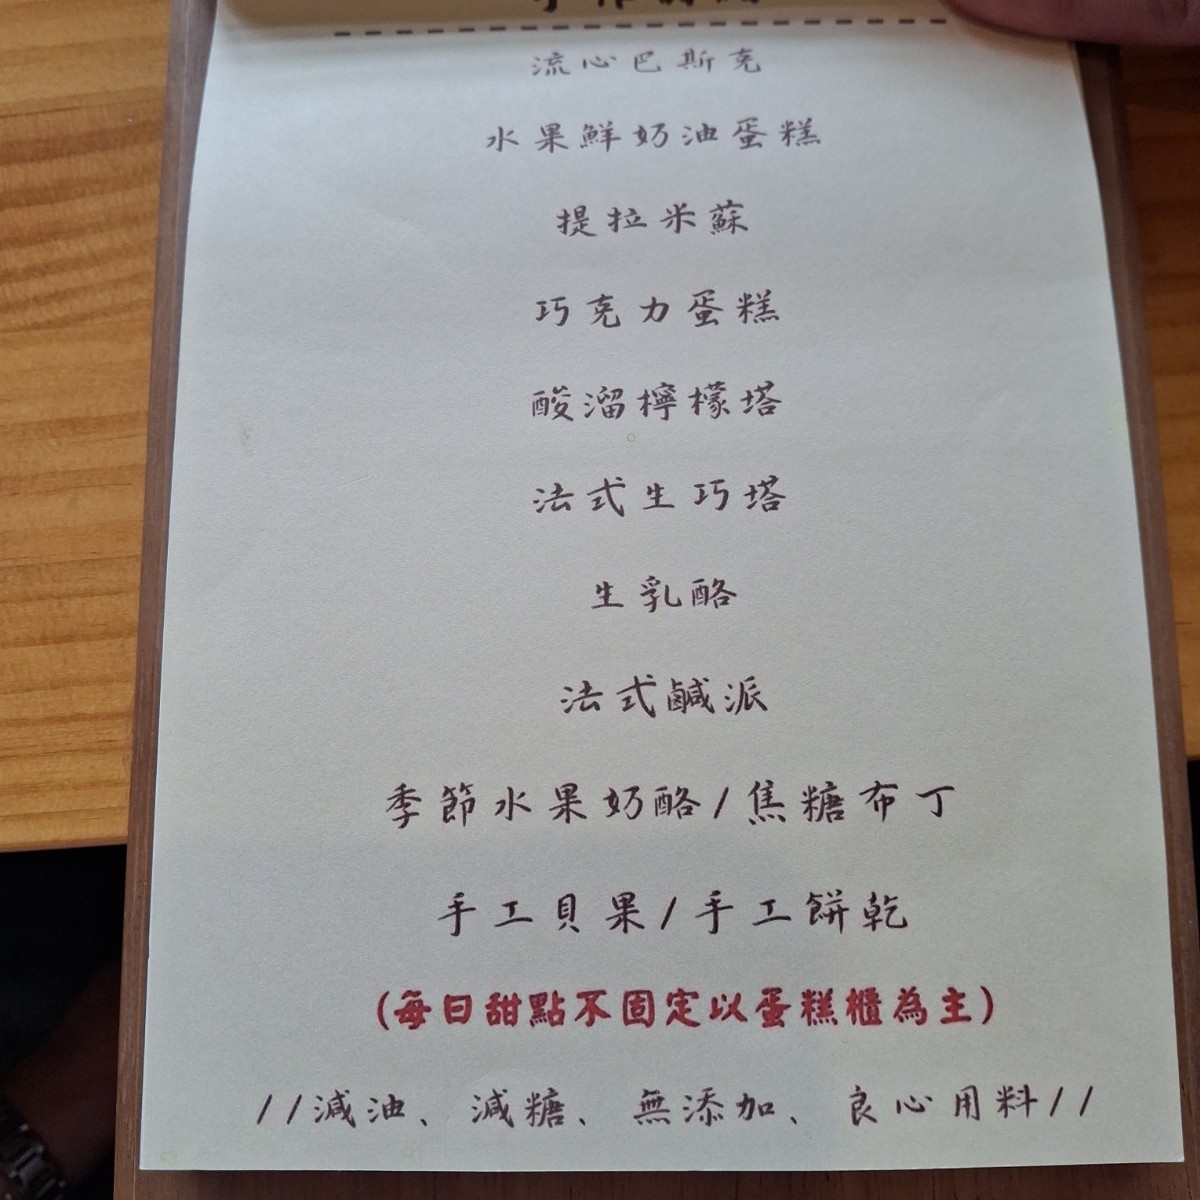 流心巴斯克
水果鮮奶油蛋糕
提拉米蘇
巧克力蛋糕
酸溜檸檬塔
法式生巧塔
生乳酪
法式鹹派
季節水果奶酪/焦糖布丁
手工貝果/手工餅乾
(每日甜點不固定以蛋糕櫃為主)
//減油、減糖、無添加、良心用料//